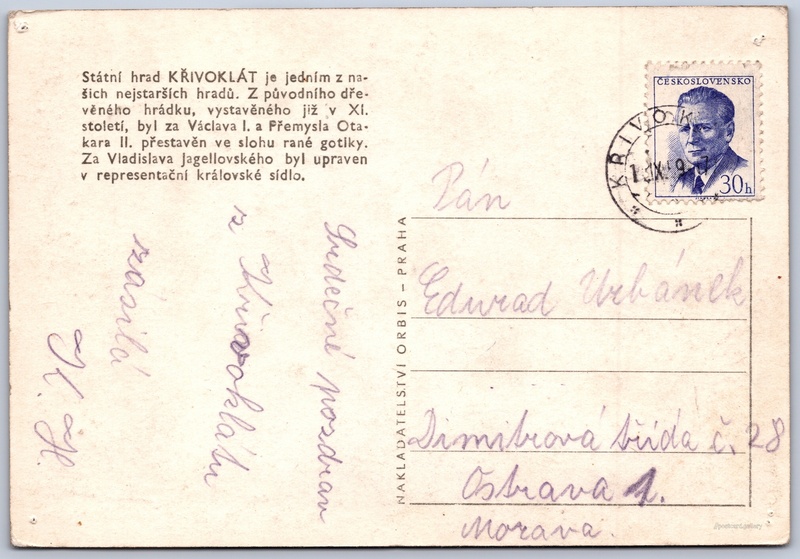 Státní hrad KŘIVOKLÁT je jedním z na-
šich nejstarších hradů. Z původního dře-
věného hrádku, vystavěného již v XI.
století, byl za Václava I. a Přemysla Ota-
kara II. přestavěn ve slohu rané gotiky.
Za Vladislava Jagellovského byl upraven
v representační královské sídlo.
Srdečné pozdrav
z Křivoklátu
zasílá
K. H.
NAKLADATELSTVÍ ORBIS – PRAHA
ČESKOSLOVENSKO
30h
KŘIVOK
Pán
Eduard Urbánek
Dimitrová třída č. 28
Ostrava 1.
Morava.